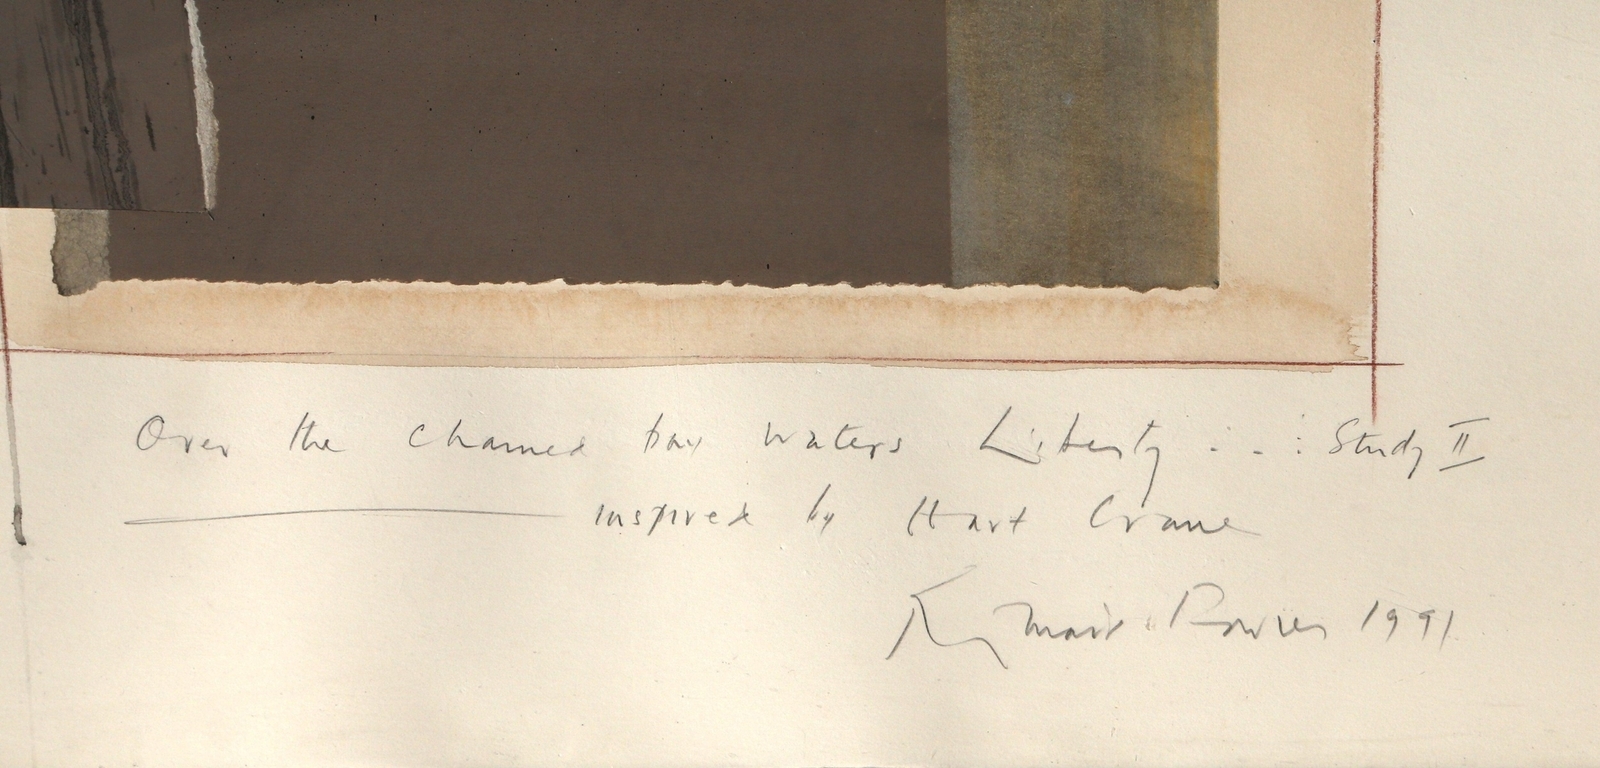 Over the chained bay waters Liberty . . . : Study II
inspired by Hart Crane
1991